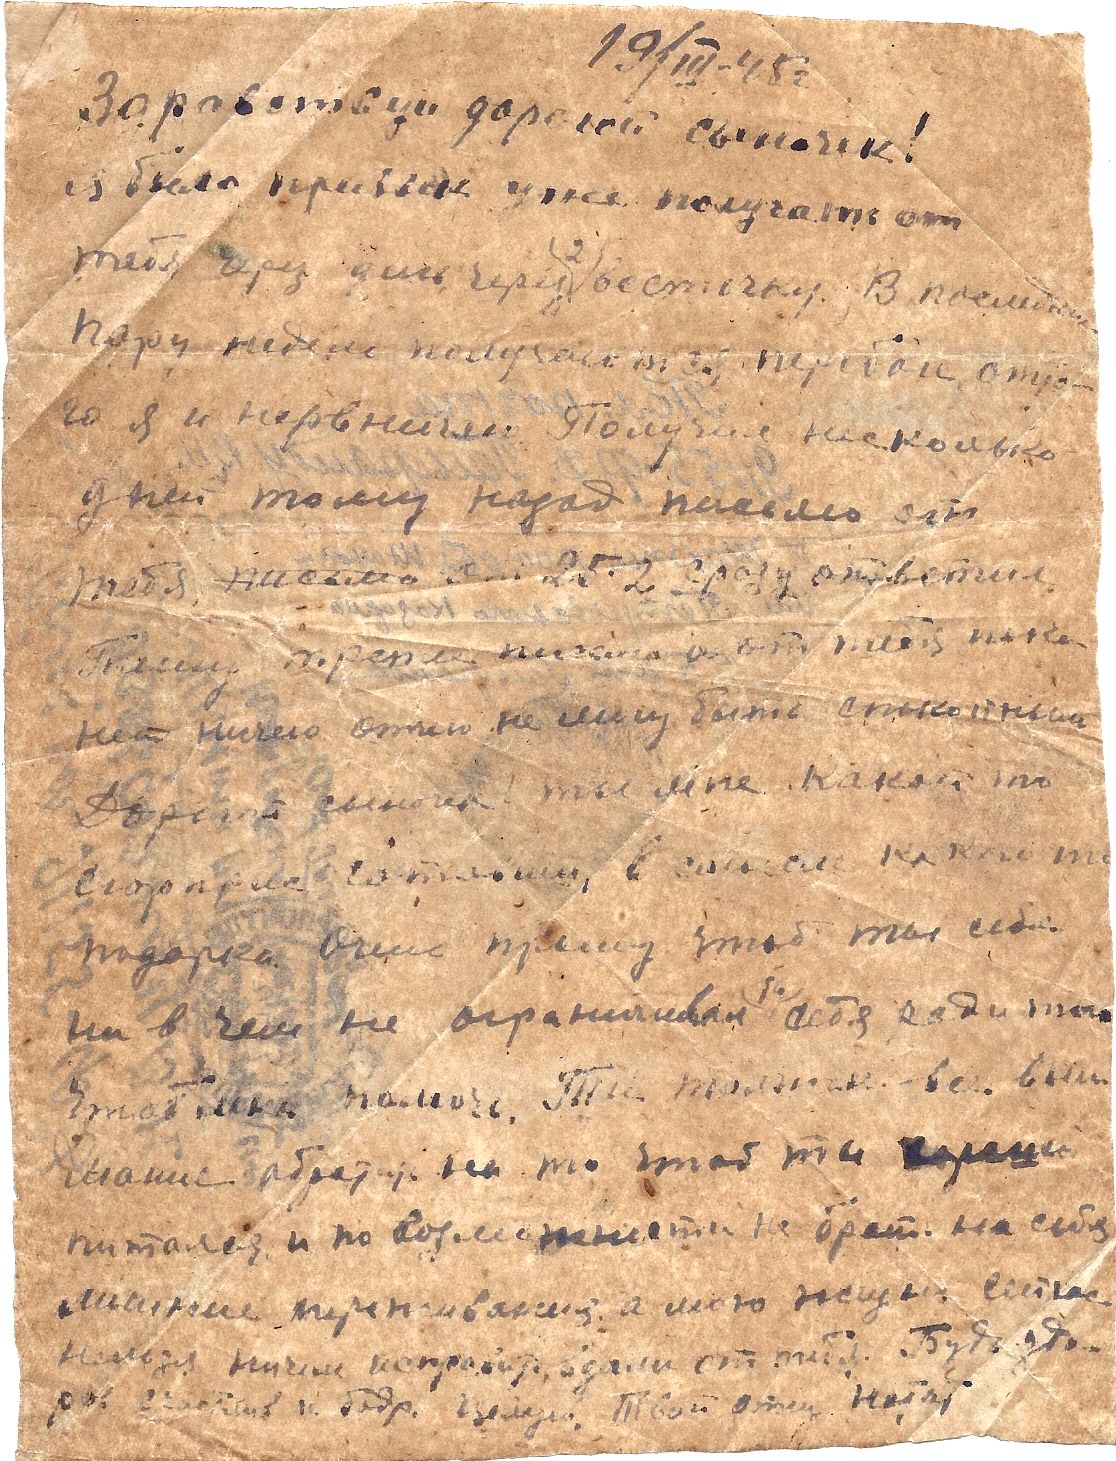 19/III-45г
Здравствуй дорогой сыночек!
Я было привык уже получать от
тебя через день, через (2) весточку. В последнию
пару недель получаются перебои, отче-
го я и нервничаю Получил несколько
дней тому назад письмо от
тебя, письмо от 25.2 сразу ответил
Пишу теперь письмо а от тебя пока
нет ничего отчего не могу быть спокойным
Дорогой сыночек! ты мне какой то
сюрприз готовишь, в смысле какого то
подарка. Очень прошу чтоб ты себя
ни в чем не ограничивал себя ради того
чтоб мне помочь. Ты должен все вни-
мание обратить на то чтоб ты хорошо
питался и по возможности не брать на себя
лишние переживания, а мою жизнь сейчас
нельзя ничем исправить, вдали от тебя. Будь здо-
ров счастлив и бодр. Целую, Твой отец